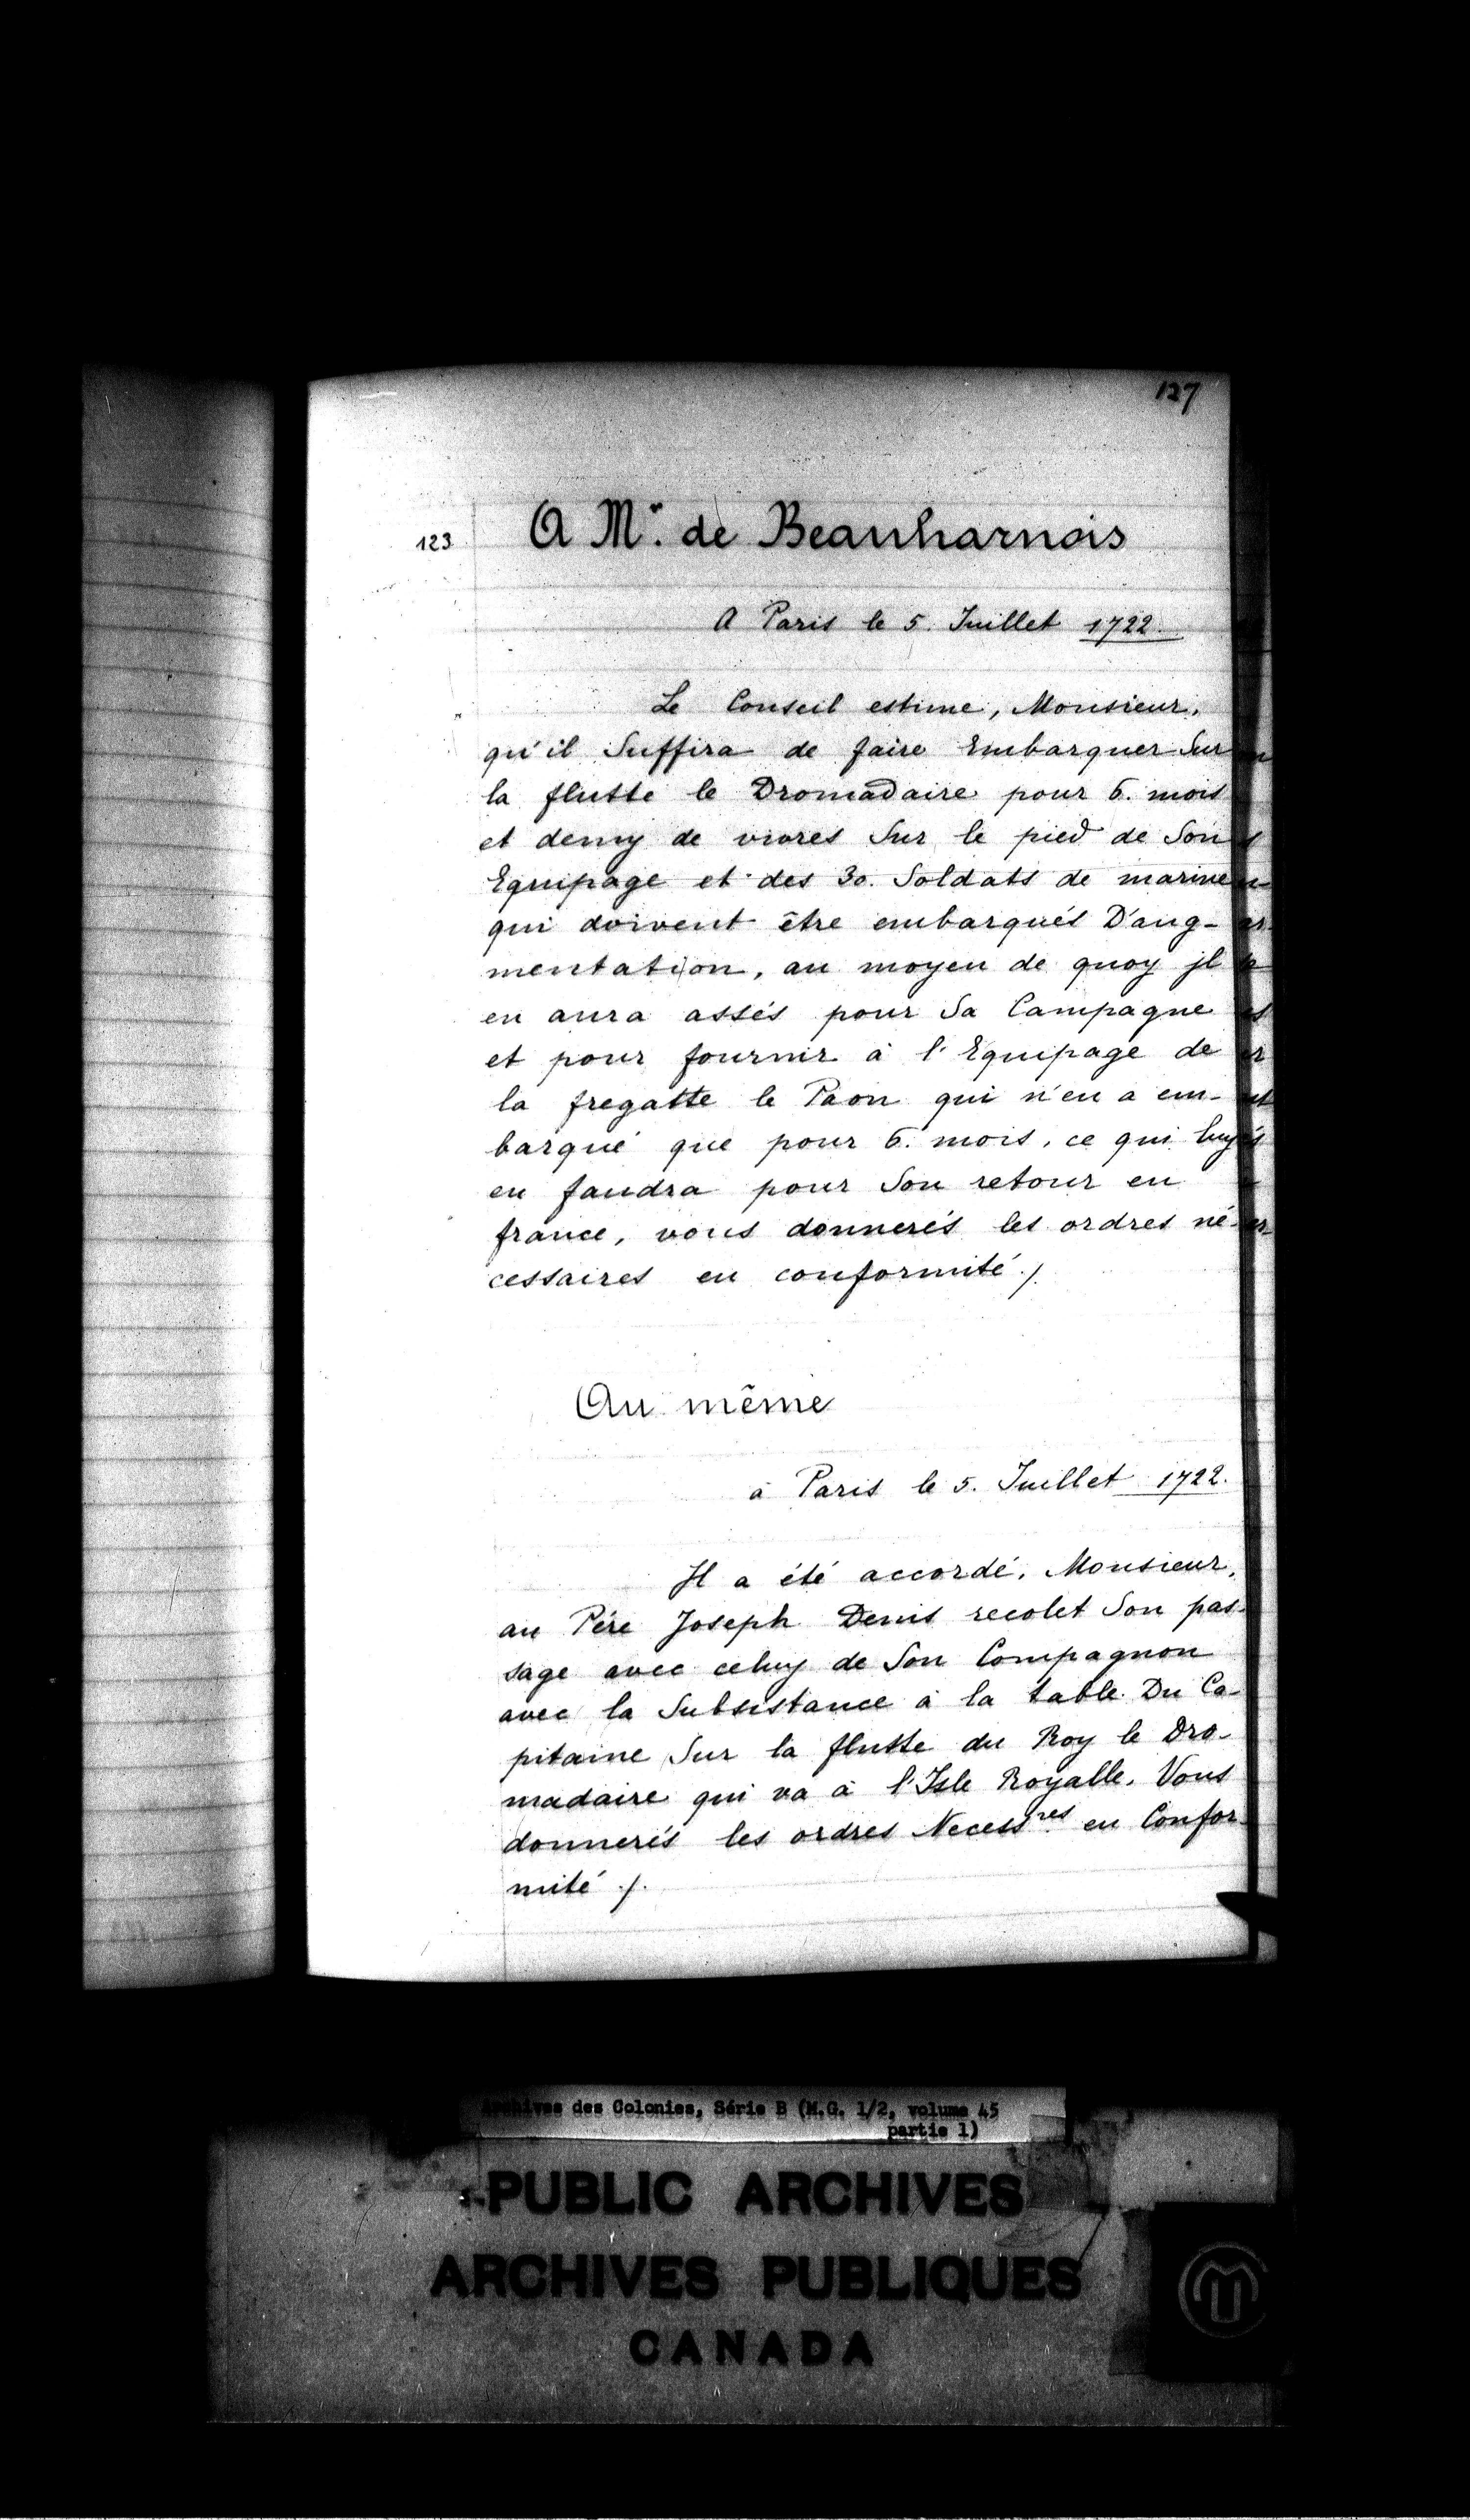 127
123 A Mr. de Beauharnois
A Paris le 5. Juillet 1722.
Le Conseil estime, Monsieur,
qu'il Suffira de faire Embarquer Sur
la flutte le Dromadaire pour 6. mois
et demy de vivres Sur le pied de Son
Equipage et des 30. Soldats de marine
qui doivent être embarqués D'aug-
mentation, au moyen de quoy jl
en aura assés pour Sa Campagne
et pour fournir à l'Equipage de
la fregatte le Paon qui n'en a em-
barqué que pour 6. mois, ce qui luy
en faudra pour Son retour en
france, vous donnerés les ordres né-
cessaires en conformité ./.
Au même
à Paris le 5. Juillet 1722.
Il a été accordé, Monsieur,
au Père Joseph Denis recolet Son pas-
sage avec celuy de Son Compagnon
avec la Subsistance à la table Du Ca-
pitaine Sur la flutte du Roy le Dro-
madaire qui va à l'Isle Royalle. Vous
donnerés les ordres Necessres en Confor-
mité ./.
Archives des Colonies, Série B (M.G. 1/2, volume 45
partie 1)
PUBLIC ARCHIVES
ARCHIVES PUBLIQUES
CANADA